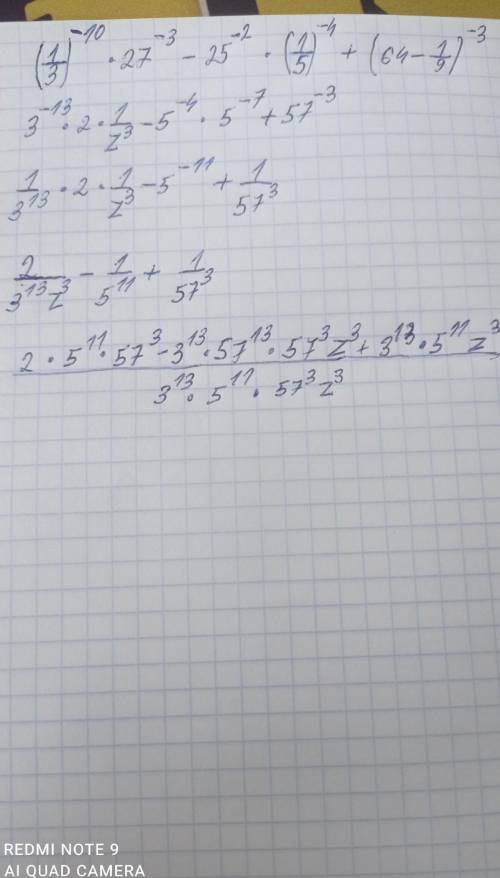 (1/3)^-10 · 27^-3 - 25^-2 · (1/5)^-4 + (64 - 1/9)^-3
3^-13 · 2 · 1/z^3 - 5^-4 · 5^-7 + 57^-3
1/3^13 · 2 · 1/z^3 - 5^-11 + 1/57^3
2/3^13 z^3 - 1/5^11 + 1/57^3
2 · 5^11 · 57^3 - 3^13 · 57^13 · 57^3 z^3 + 3^13 · 5^11 z^3
3^13 · 5^11 · 57^3 z^3
REDMI NOTE 9
AI QUAD CAMERA